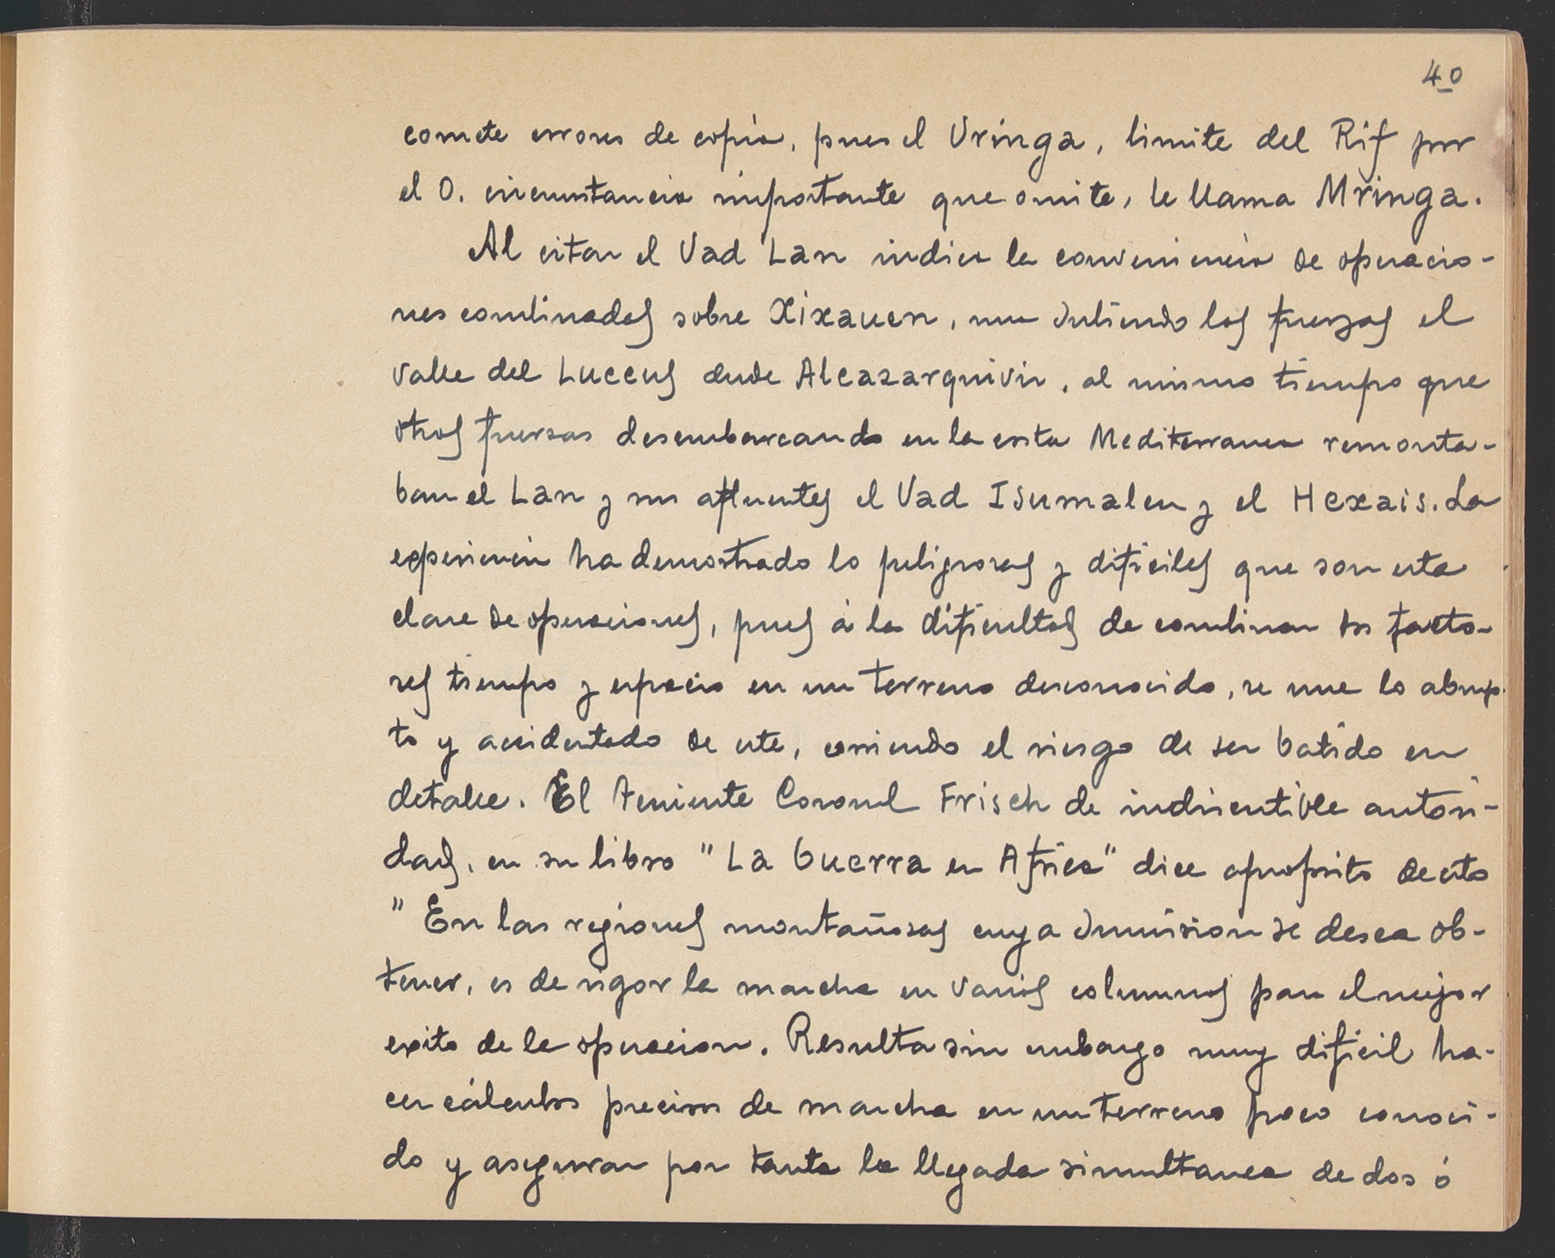 40
comete errores de copia, pues el Uringa, limite del Rif por
el O. circunstancia importante que omite, le llama Mringa.
Al citar el Vad Lan indica la conveniencia de operacio-
nes combinadas sobre Xixauen, una subiendo las fuerzas el
valle del Luccus desde Alcazarquivir, al mismo tiempo que
otras fuerzas desembarcando en la costa Mediterranea remonta-
ban el Lan y sus afluentes el Vad Isumalen y el Hexais. La
experiencia ha demostrado lo peligrosas y dificiles que son esta
clase de operaciones, pues á la dificultad de combinar los facto-
res tiempo y espacio en un terreno desconocido, se une lo abrup-
to y accidentado de este, corriendo el riesgo de ser batido en
detalle. El Teniente Coronel Frisch de indiscutible autori-
dad, en su libro "La Guerra en Africa" dice aproposito de esto
"En las regiones montañosas cuya sumision se desea ob-
tener, es de rigor la marcha en varias columnas para el mejor
exito de la operacion. Resulta sin embargo muy dificil ha-
cer cálculos precisos de marcha en un terreno poco conoci-
do y asegurar por tanto la llegada simultanea de dos ó